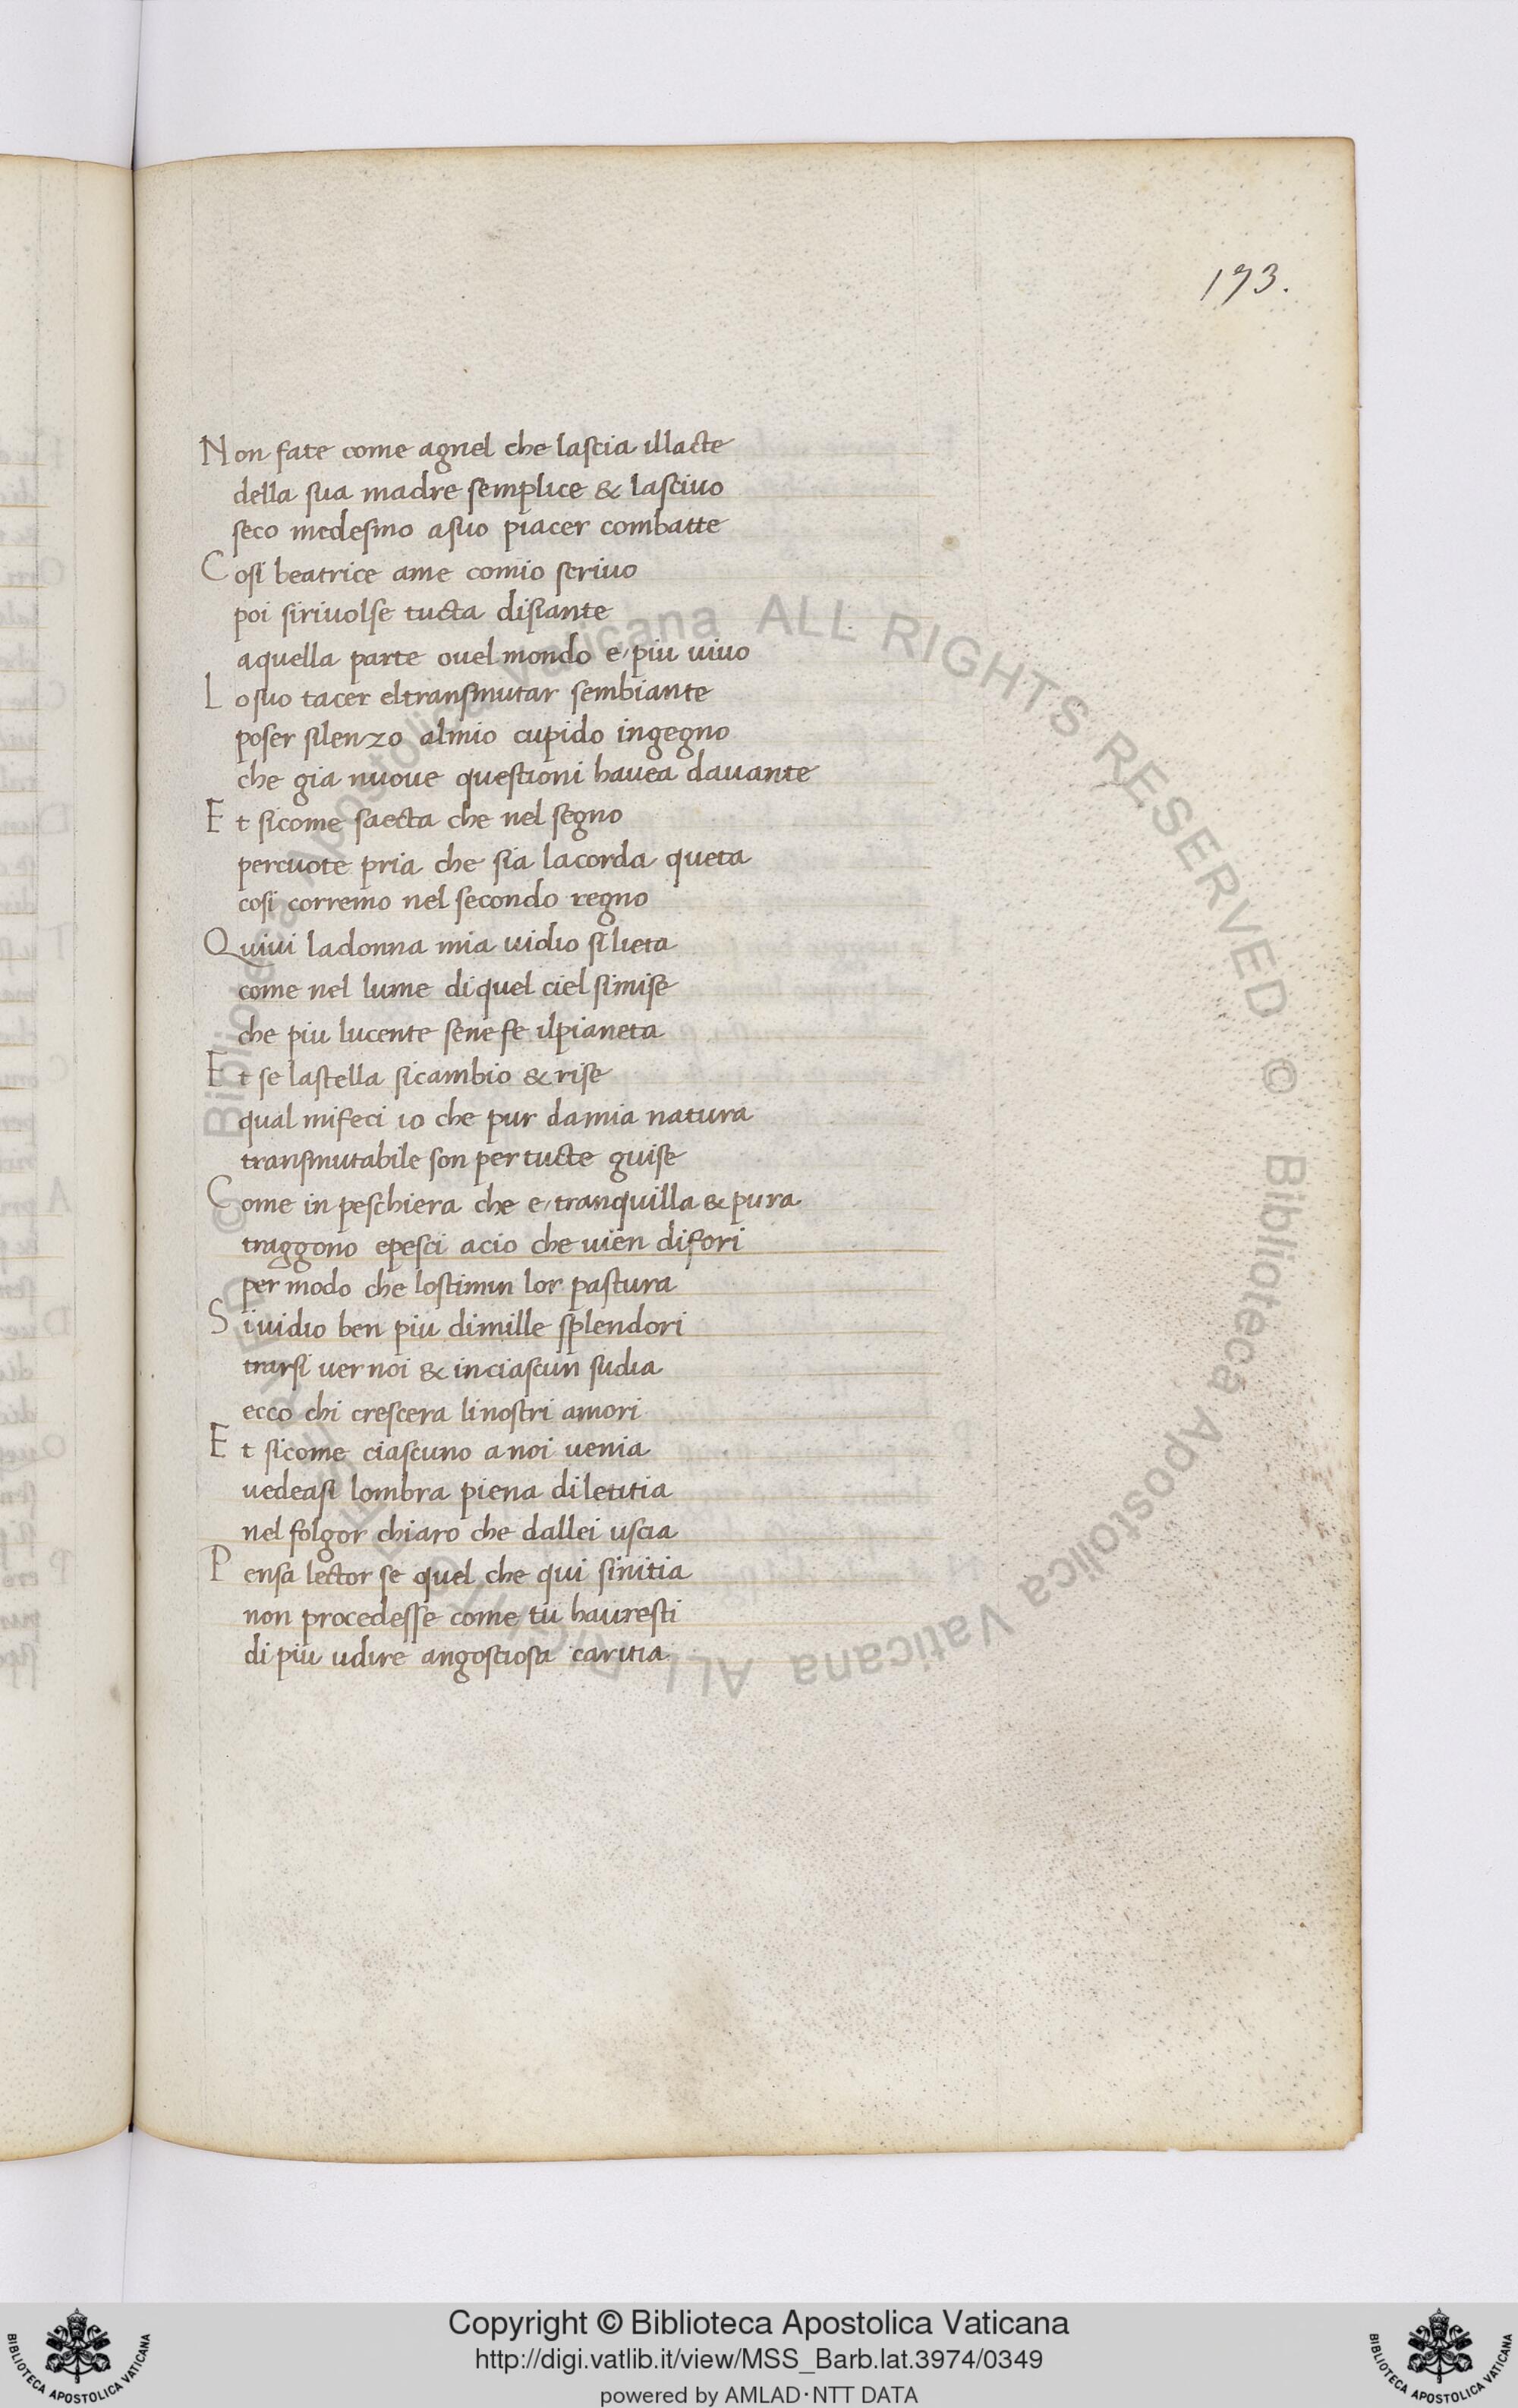 173.
Non fate come agnel che lascia illacte
della sua madre semplice & lascivo
seco medesmo asuo piacer combatte
Cosi beatrice ame comio scrivo
poi sirivolse tucta disiante
aquella parte ovel mondo e/piu vivo
Losuo tacer eltransmutar sembiante
poser silenzo almio cupido ingegno
che gia nuove questioni havea davante
Et sicome saecta che nel segno
percuote pria che sia lacorda queta
cosi corremo nel secondo regno
Quivi ladonna mia vidio silieta
come nel lume diquel ciel simise
che piu lucente senefe ilpianeta
Et se lastella sicambio & rise
qual mifeci io che pur damia natura
transmutabile son per tucte guise
Come in peschiera che e/tranquilla & pura
traggono epesci acio che vien difori
per modo che lostimin lor pastura
Sividio ben piu dimille splendori
trarsi ver noi & inciascun sudia
ecco chi crescera linostri amori
Et sicome ciascuno anoi venia
vedeasi lombra piena diletitia
nel folgor chiaro che dallei uscia
Pensa lector se quel che qui sinitia
non procedesse come tu havresti
di piu udire angosciosa caritia
© Biblioteca Apostolica Vaticana ALL RIGHTS RESERVED © Biblioteca Apostolica Vaticana ALL RIGHTS RESERVED
Copyright © Biblioteca Apostolica Vaticana
http://digi.vatlib.it/view/MSS_Barb.lat.3974/0349
powered by AMLAD·NTT DATA
BIBLIOTECA APOSTOLICA VATICANA
BIBLIOTECA APOSTOLICA VATICANA